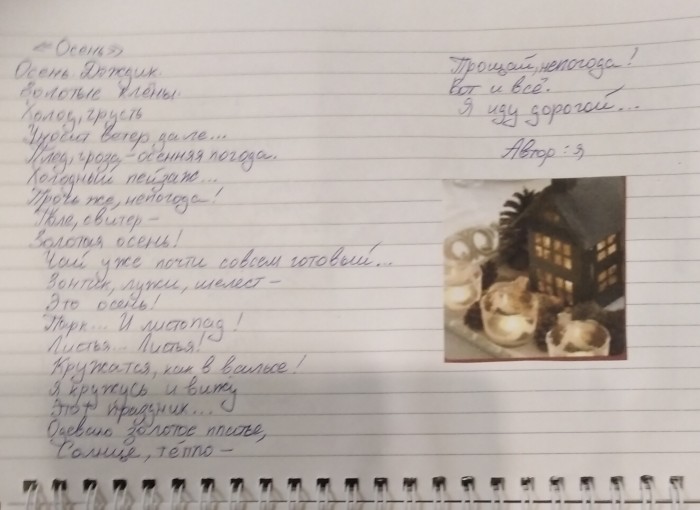 «Осень»
Осень. Дождик.
Золотые клёны.
Холод, грусть
ветер, дале...
Плед, гроза, - осенняя погода.
Холодный пейзаж...
Прочь же, непогода!
Поле, свитер -
Золотая осень!
Чай уже почти совсем готовый...
Зонтик, лужи, шелест -
Это осень!
Парк... И листопад!
Листья... Листья!
Кружатся, как в вальсе!
Я кружусь и вижу
Этот праздник...
Одеваю золотое платье,
Солнце, тепло -
Прощай, непогода!
Вот и всё.
Я иду дорогой...
Автор: я